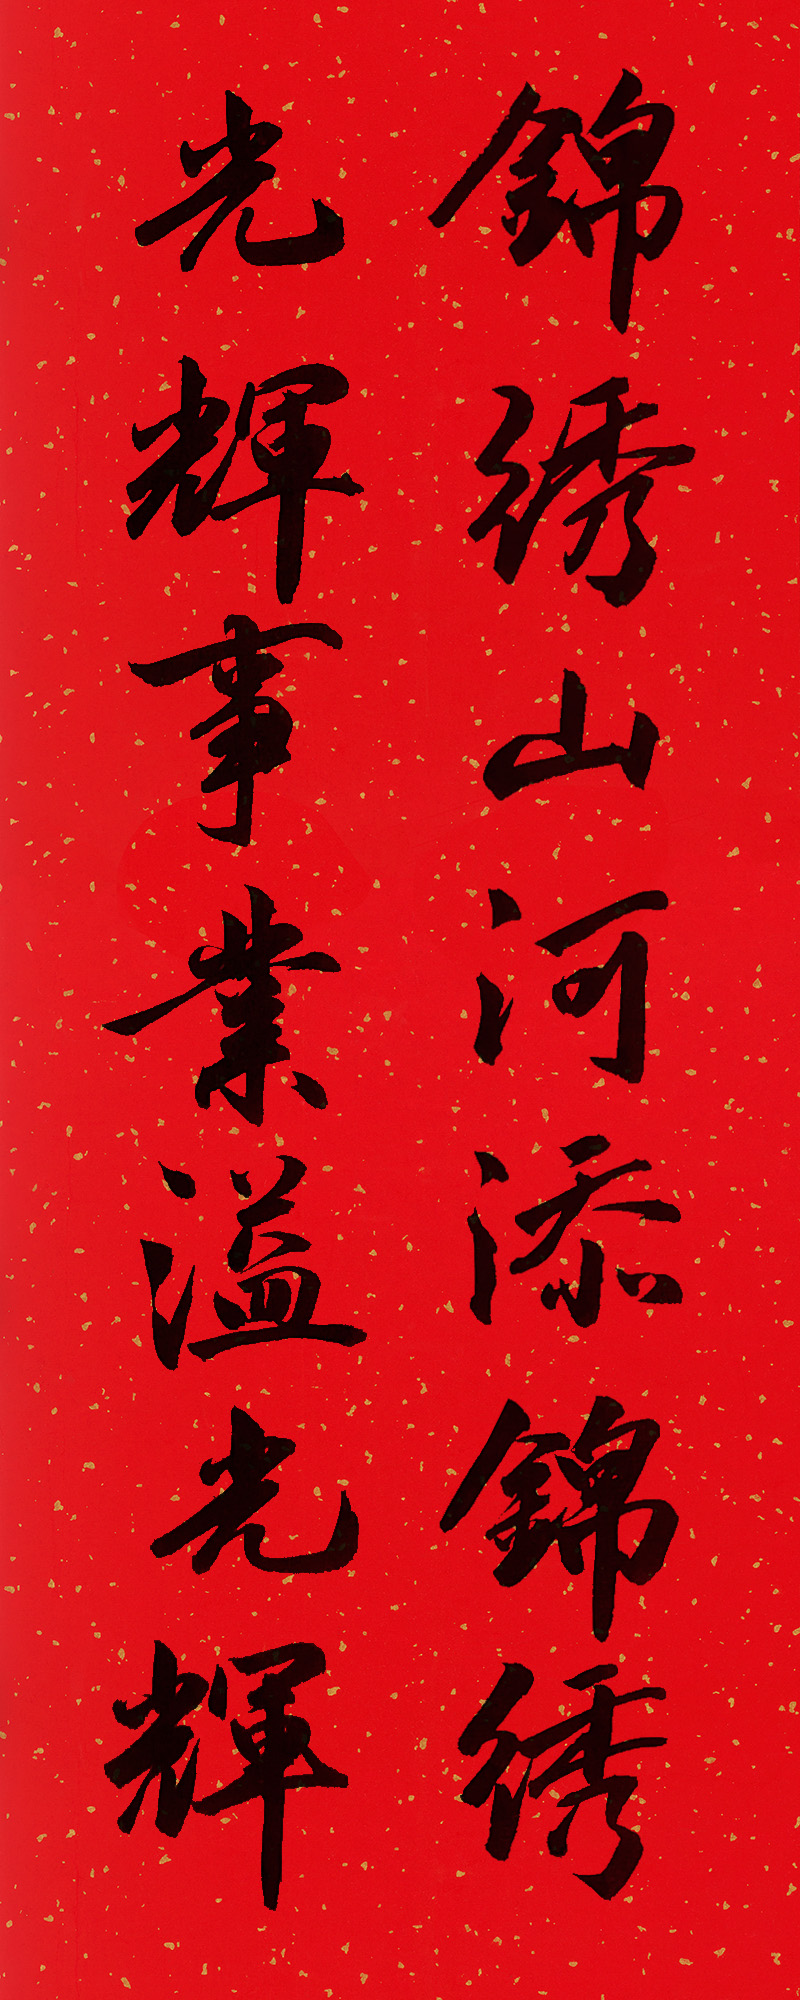 錦綉山河添錦綉
光輝事業溢光輝